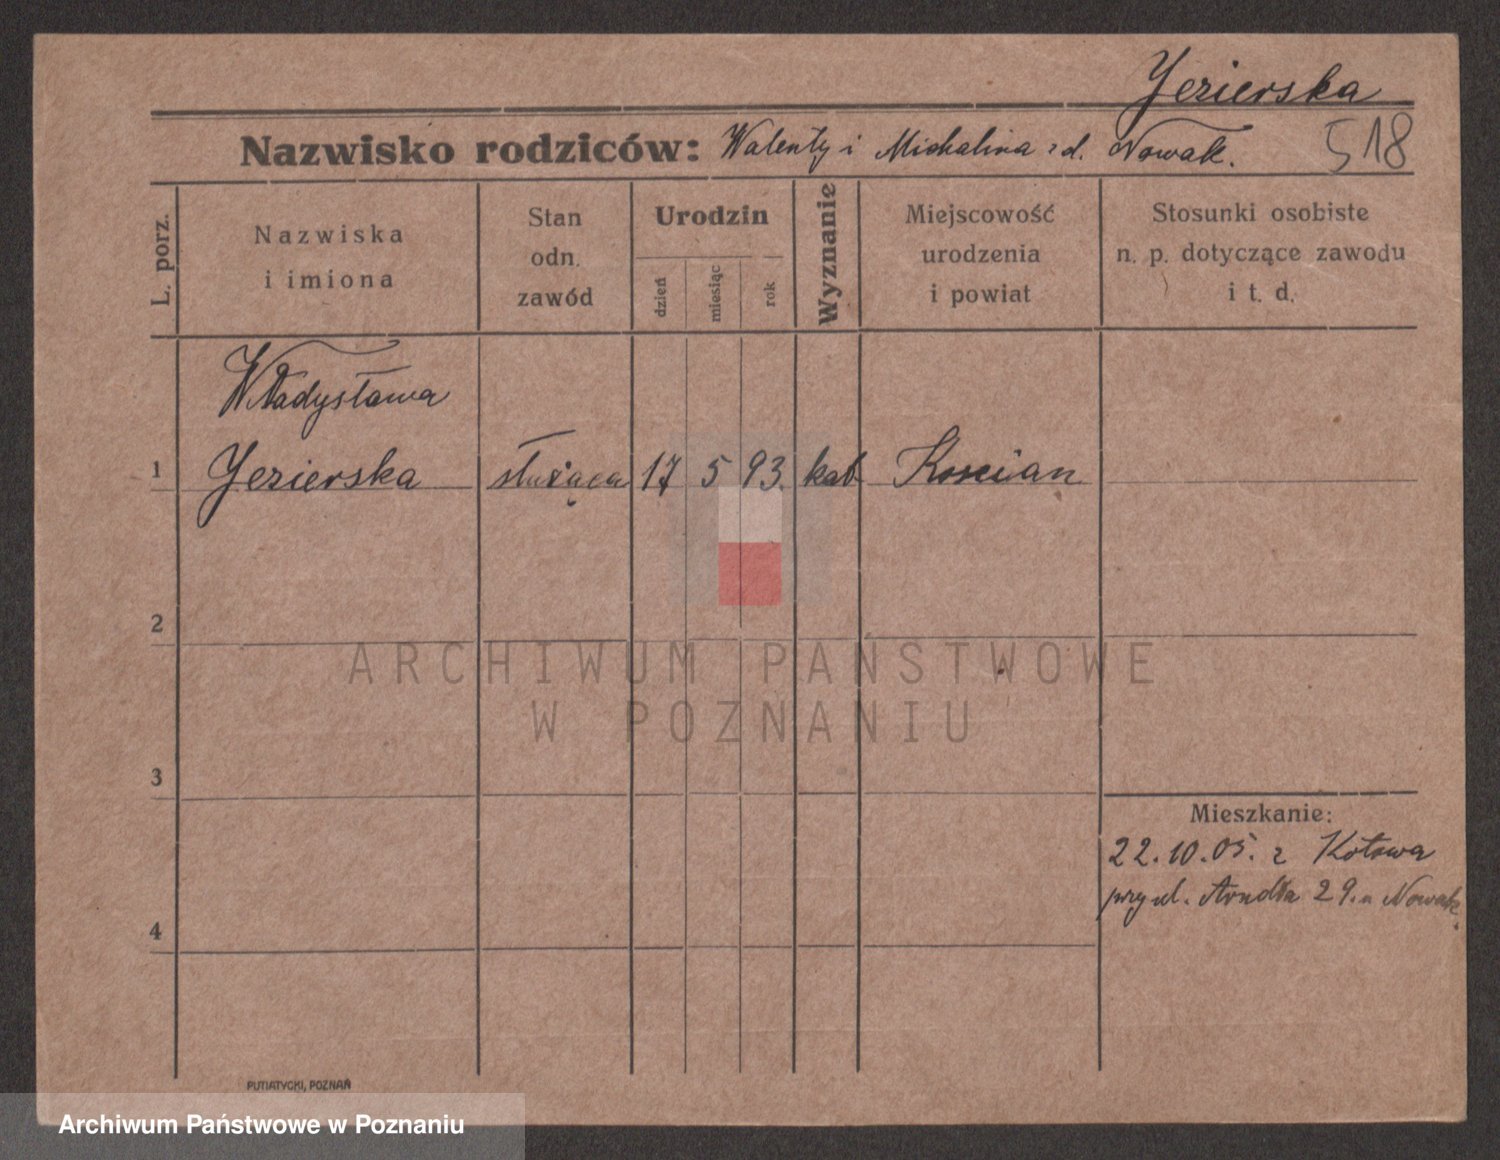 Jezierska
Nazwisko rodziców: Walenty i Michalina zd. Nowak.
518
L. porz.
Nazwiska
i imiona
Stan
odn.
zawód
Urodzin
dzień
miesiąc
rok
Wyznanie
Miejscowość
urodzenia
i powiat
Stosunki osobiste
n. p. dotyczące zawodu
i t. d.
Władysława
1 Jezierska służąca 17 5 93. kat Koscian
2
ARCHIWUM PAŃSTWOWE
W POZNANIU
3
Mieszkanie:
22.10.05. z Kotowa
przy ul. Arndta 29. u Nowak.
4
PUTIATYCKI, POZNAŃ
Archiwum Państwowe w Poznaniu